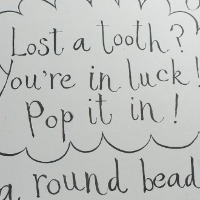 Lost a tooth?
You're in luck!
Pop it in!
a round bead